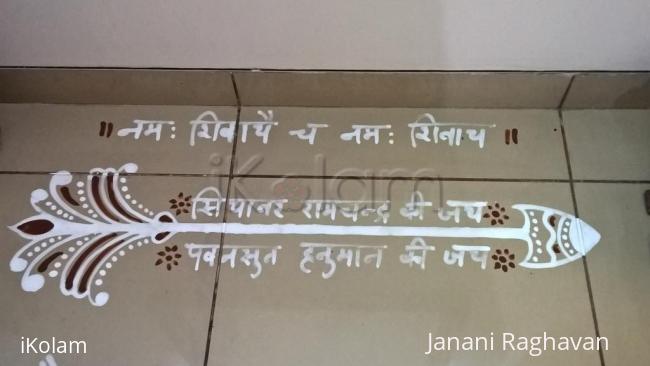 ॥ नमः शिवायै च नमः शिवाय ॥
iKolam
सियावर रामचन्द्र की जय
पवनसुत हनुमान की जय
iKolam
Janani Raghavan